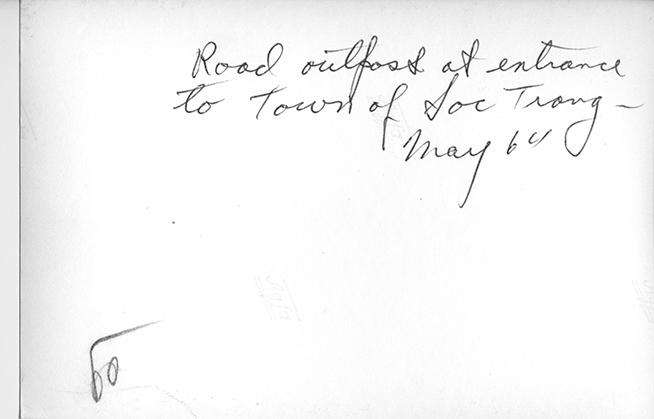 Road outpost at entrance
to Town of Soc Trang -
May 64
60